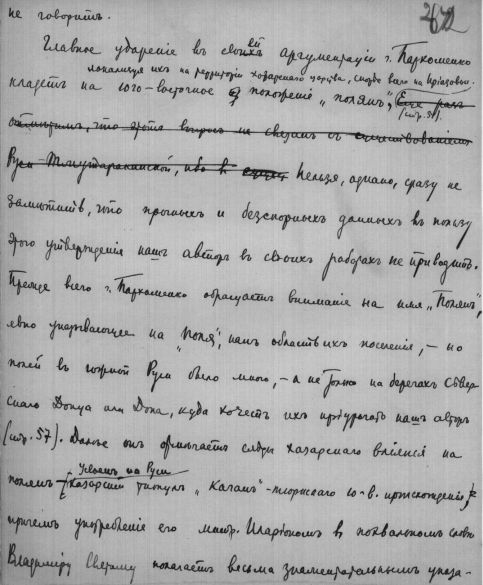 не говоритъ.
Главное ударенiе въ своей аргументацiи г. Пархоменко
локализуя ихъ на территорiи хозарскаго царства, скорѣе всего на Прiазовьи
кладетъ на юго-восточное положенiе „полянъ",
(стр. 58).
отмѣтимъ, что этотъ вопросъ не связанъ съ существованiемъ
Руси Тмутараканской, ибо въ Нельзя, однако, сразу не
замѣтить, что прочныхъ и безспорныхъ данныхъ въ пользу
этого утвержденiя нашъ авторъ въ своихъ работахъ не приводитъ.
Прежде всего г. Пархоменко обращаетъ вниманiе на имя „Полянъ",
явно указывающее на „поля", какъ область ихъ поселенiя, – но
полей въ южной Руси было много, – а не только на берегахъ Сѣвер
скаго Донца или Дона, куда хочетъ ихъ прiурочить нашъ авторъ
(стр. 57). Далѣе онъ отмѣчаетъ слѣды хазарскаго влiянiя на
Кiевск. на Руси
полянъ – хазарскiй титулъ „Каганъ" – тюркскаго ю-в. происхожденiя,
причемъ употребленiе его митр. Иларiономъ въ похвальномъ словѣ
Владимiру Святому полагаетъ весьма знаменательнымъ указа-